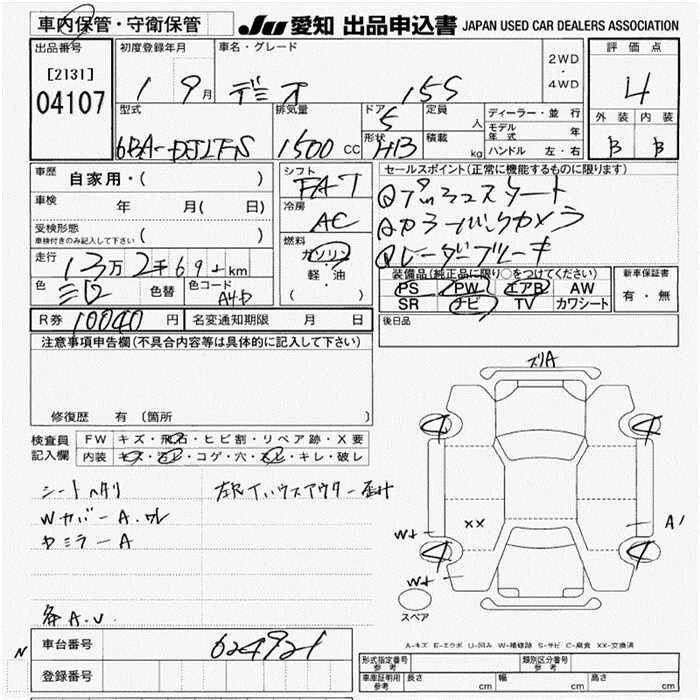 車内保管・守衛保管
JU 愛知 出品申込書 JAPAN USED CAR DEALERS ASSOCIATION
出品番号
[2131]
04107
初度登録年月
1 9月
車名・グレード
デミオ 15S
2WD
・
4WD
評価点
4
外装 内装
B B
型式
6BA-DJLFS
排気量
1500 CC
ドア
5
形状
HB
定員
人
積載
kg
ディーラー・並行
モデル年式 年
ハンドル 左・右
車歴 自家用・( )
車検 年 月( 日)
受検形態
車検付きのみ記入して下さい ( )
走行 13万2千69 km
色 色替 色コード
シフト
FAT
冷房
AC
燃料
ガソリン
・
軽・油
( )
セールスポイント(正常に機能するものに限ります)
①プッシュスタート
②カラーバックカメラ
装備品(純正品に限り○をつけてください)
PS PW エアB AW
SR ナビ TV カワシート
新車保証書
有・無
後日品
R券 10040円 名変通知期限 月 日
注意事項申告欄(不具合内容等は具体的に記入して下さい)
修復歴 有 〔箇所 〕
検査員記入欄
FW キズ・飛石・ヒビ割・リペア跡・X要
内装 キズ・汚レ・コゲ・穴・スレ・キレ・破レ
シートヘタリ
Wカバー A.ワレ
ドミラー A
各A.U.
ズリA
A'
XX
W+
W+
スペア
A-キズ E-エクボ U-凹み W-補修跡 S-サビ C-腐食 XX-交換済
車台番号 624921
登録番号
N
形式指定番号 参考
類別区分番号 参考
車庫証明用 参考 長さ cm 幅 cm 高さ cm